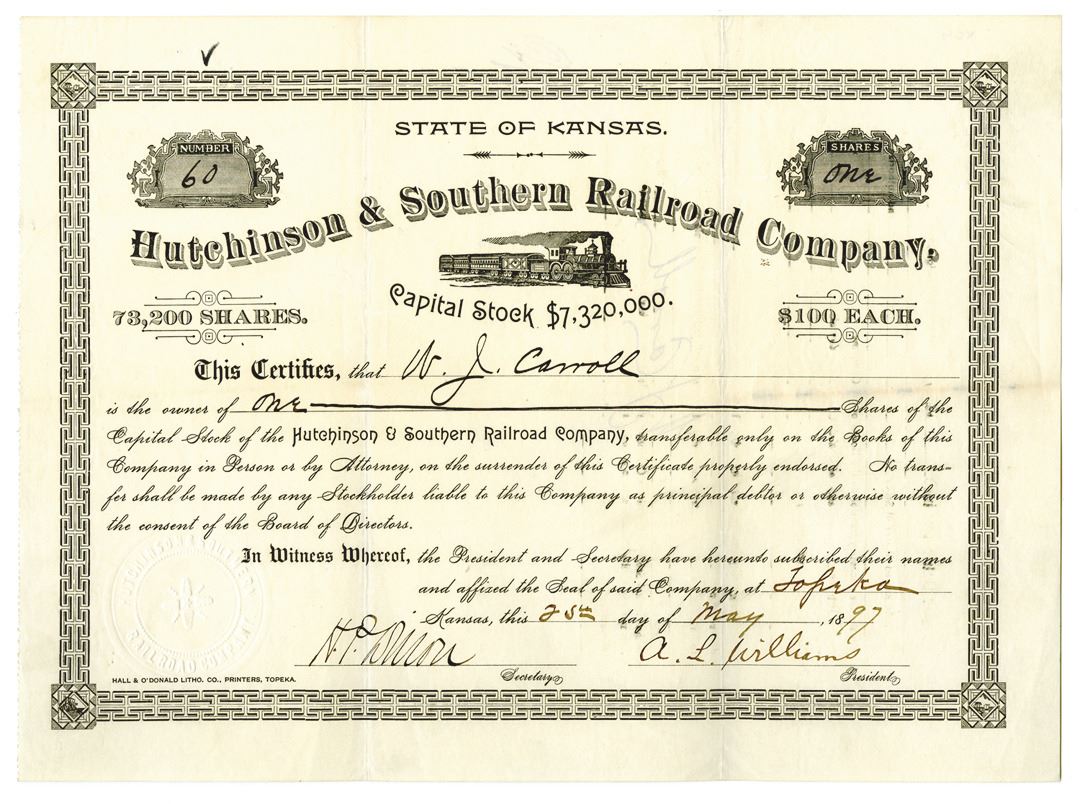 STATE OF KANSAS.
NUMBER
60
SHARES
One
Hutchinson & Southern Railroad Company.
Capital Stock $7,320,000.
73,200 SHARES.
$100 EACH.
This Certifies, that W. J. Carroll
is the owner of One Shares of the
Capital Stock of the Hutchinson & Southern Railroad Company, transferable only on the Books of this
Company in Person or by Attorney, on the surrender of this Certificate properly endorsed. No trans-
fer shall be made by any Stockholder liable to this Company as principal debtor or otherwise without
the consent of the Board of Directors.
In Witness Whereof, the President and Secretary have hereunto subscribed their names
and affixed the Seal of said Company, at Topeka
Kansas, this 25th day of May, 1897
A. L. Williams
Secretary
President
HALL & O'DONALD LITHO. CO., PRINTERS, TOPEKA.
RAILROAD COMPANY